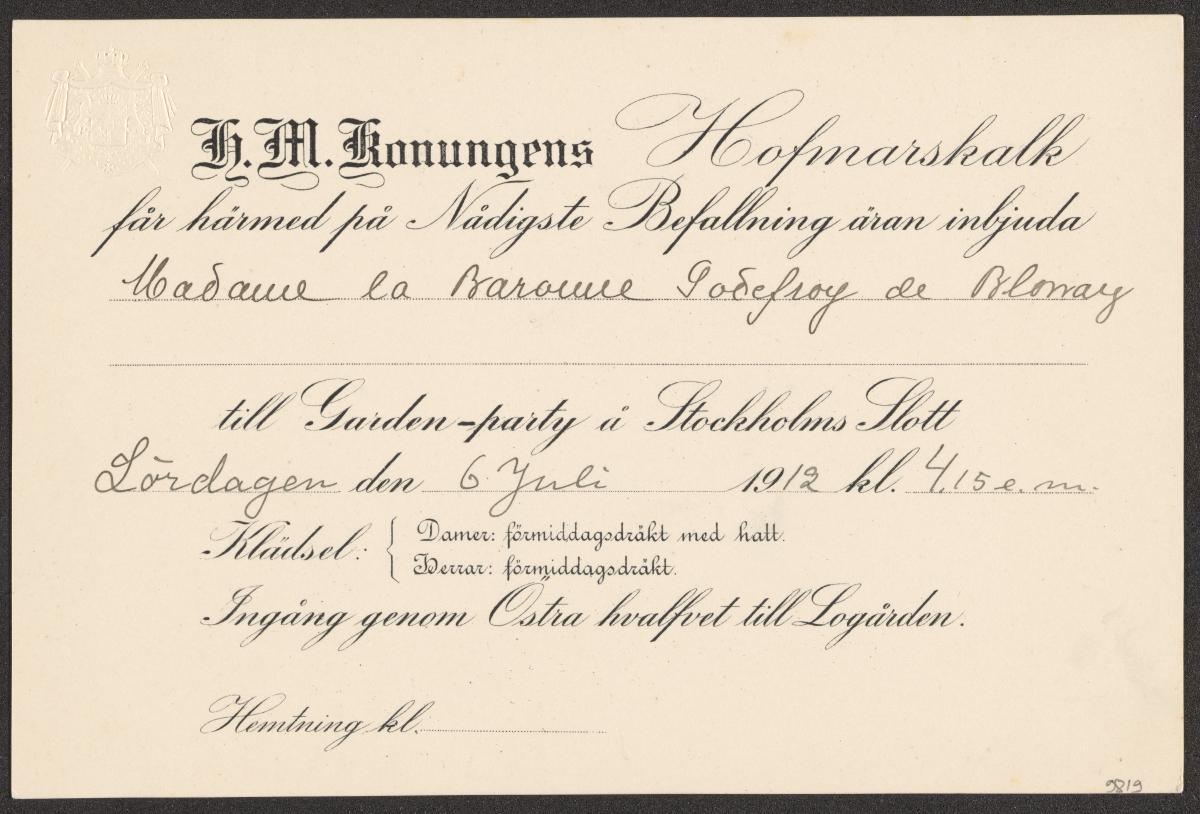 H. M. Konungens Hofmarskalk
får härmed på Nådigste Befallning äran inbjuda
Madame la Baronne Godefroy de Blonay
till Garden-party å Stockholms Slott
Lördagen den 6 Juli 1912 kl. 4.15 e. m.
Klädsel: { Damer: förmiddagsdräkt med hatt.
Herrar: förmiddagsdräkt.
Ingång genom Östra hvalfvet till Logården.
Hemtning kl.
9819